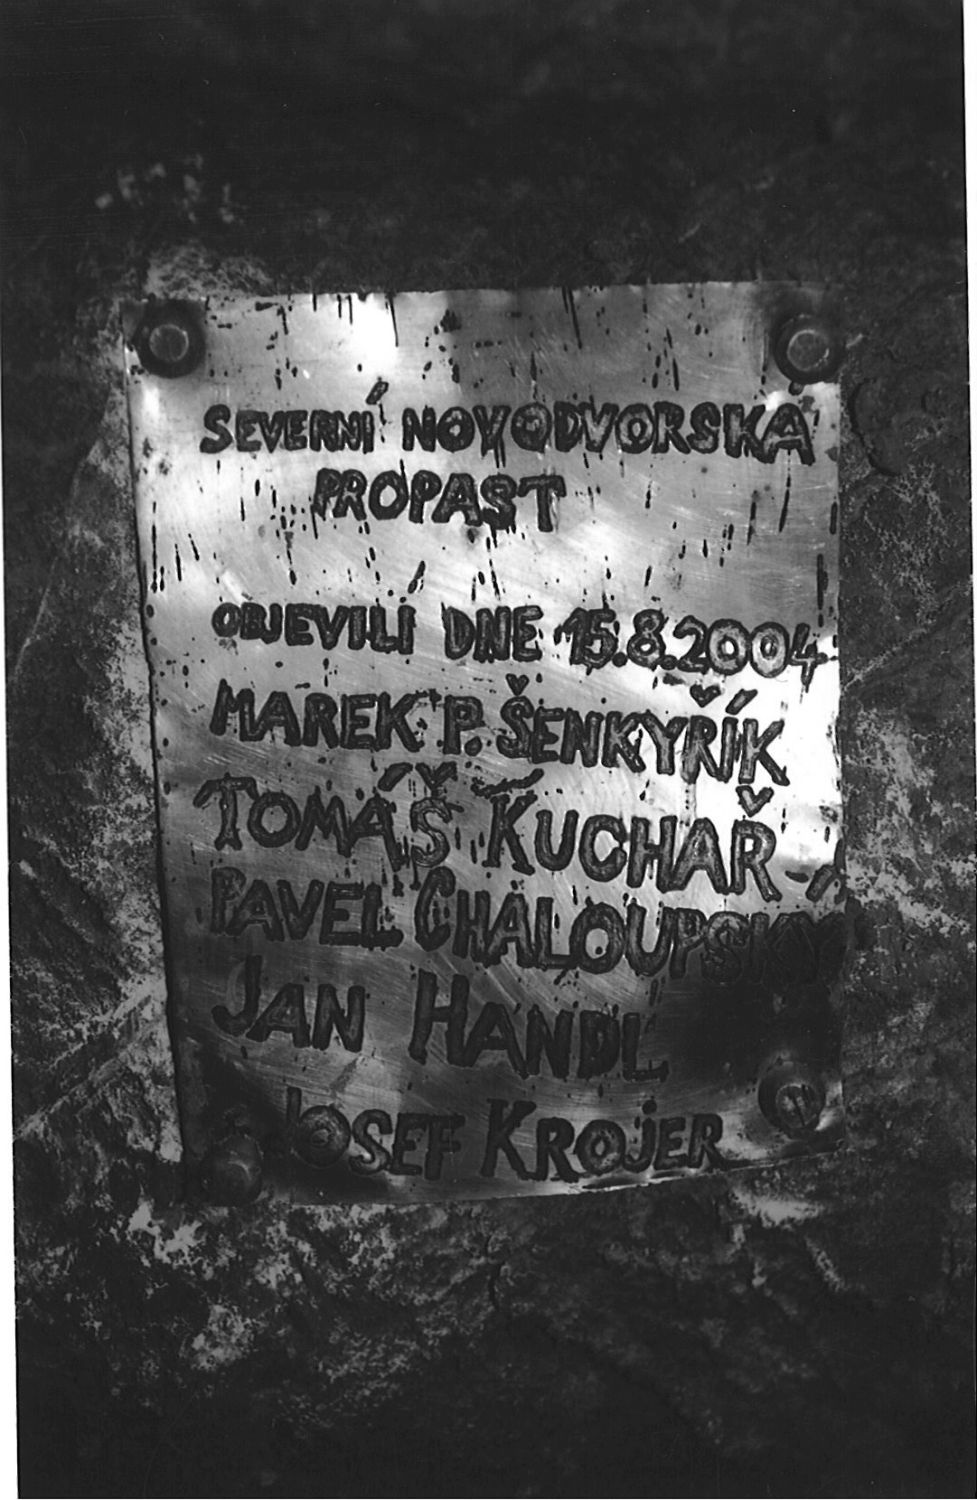 SEVERNÍ NOVODVORSKÁ
PROPAST
OBJEVILÍ DNE 15.8.2004
MAREK P. ŠENKYŘÍK
TOMÁŠ KUCHAŘ
PAVEL CHALOUPSKÝ
JAN HANDL
JOSEF KROJER